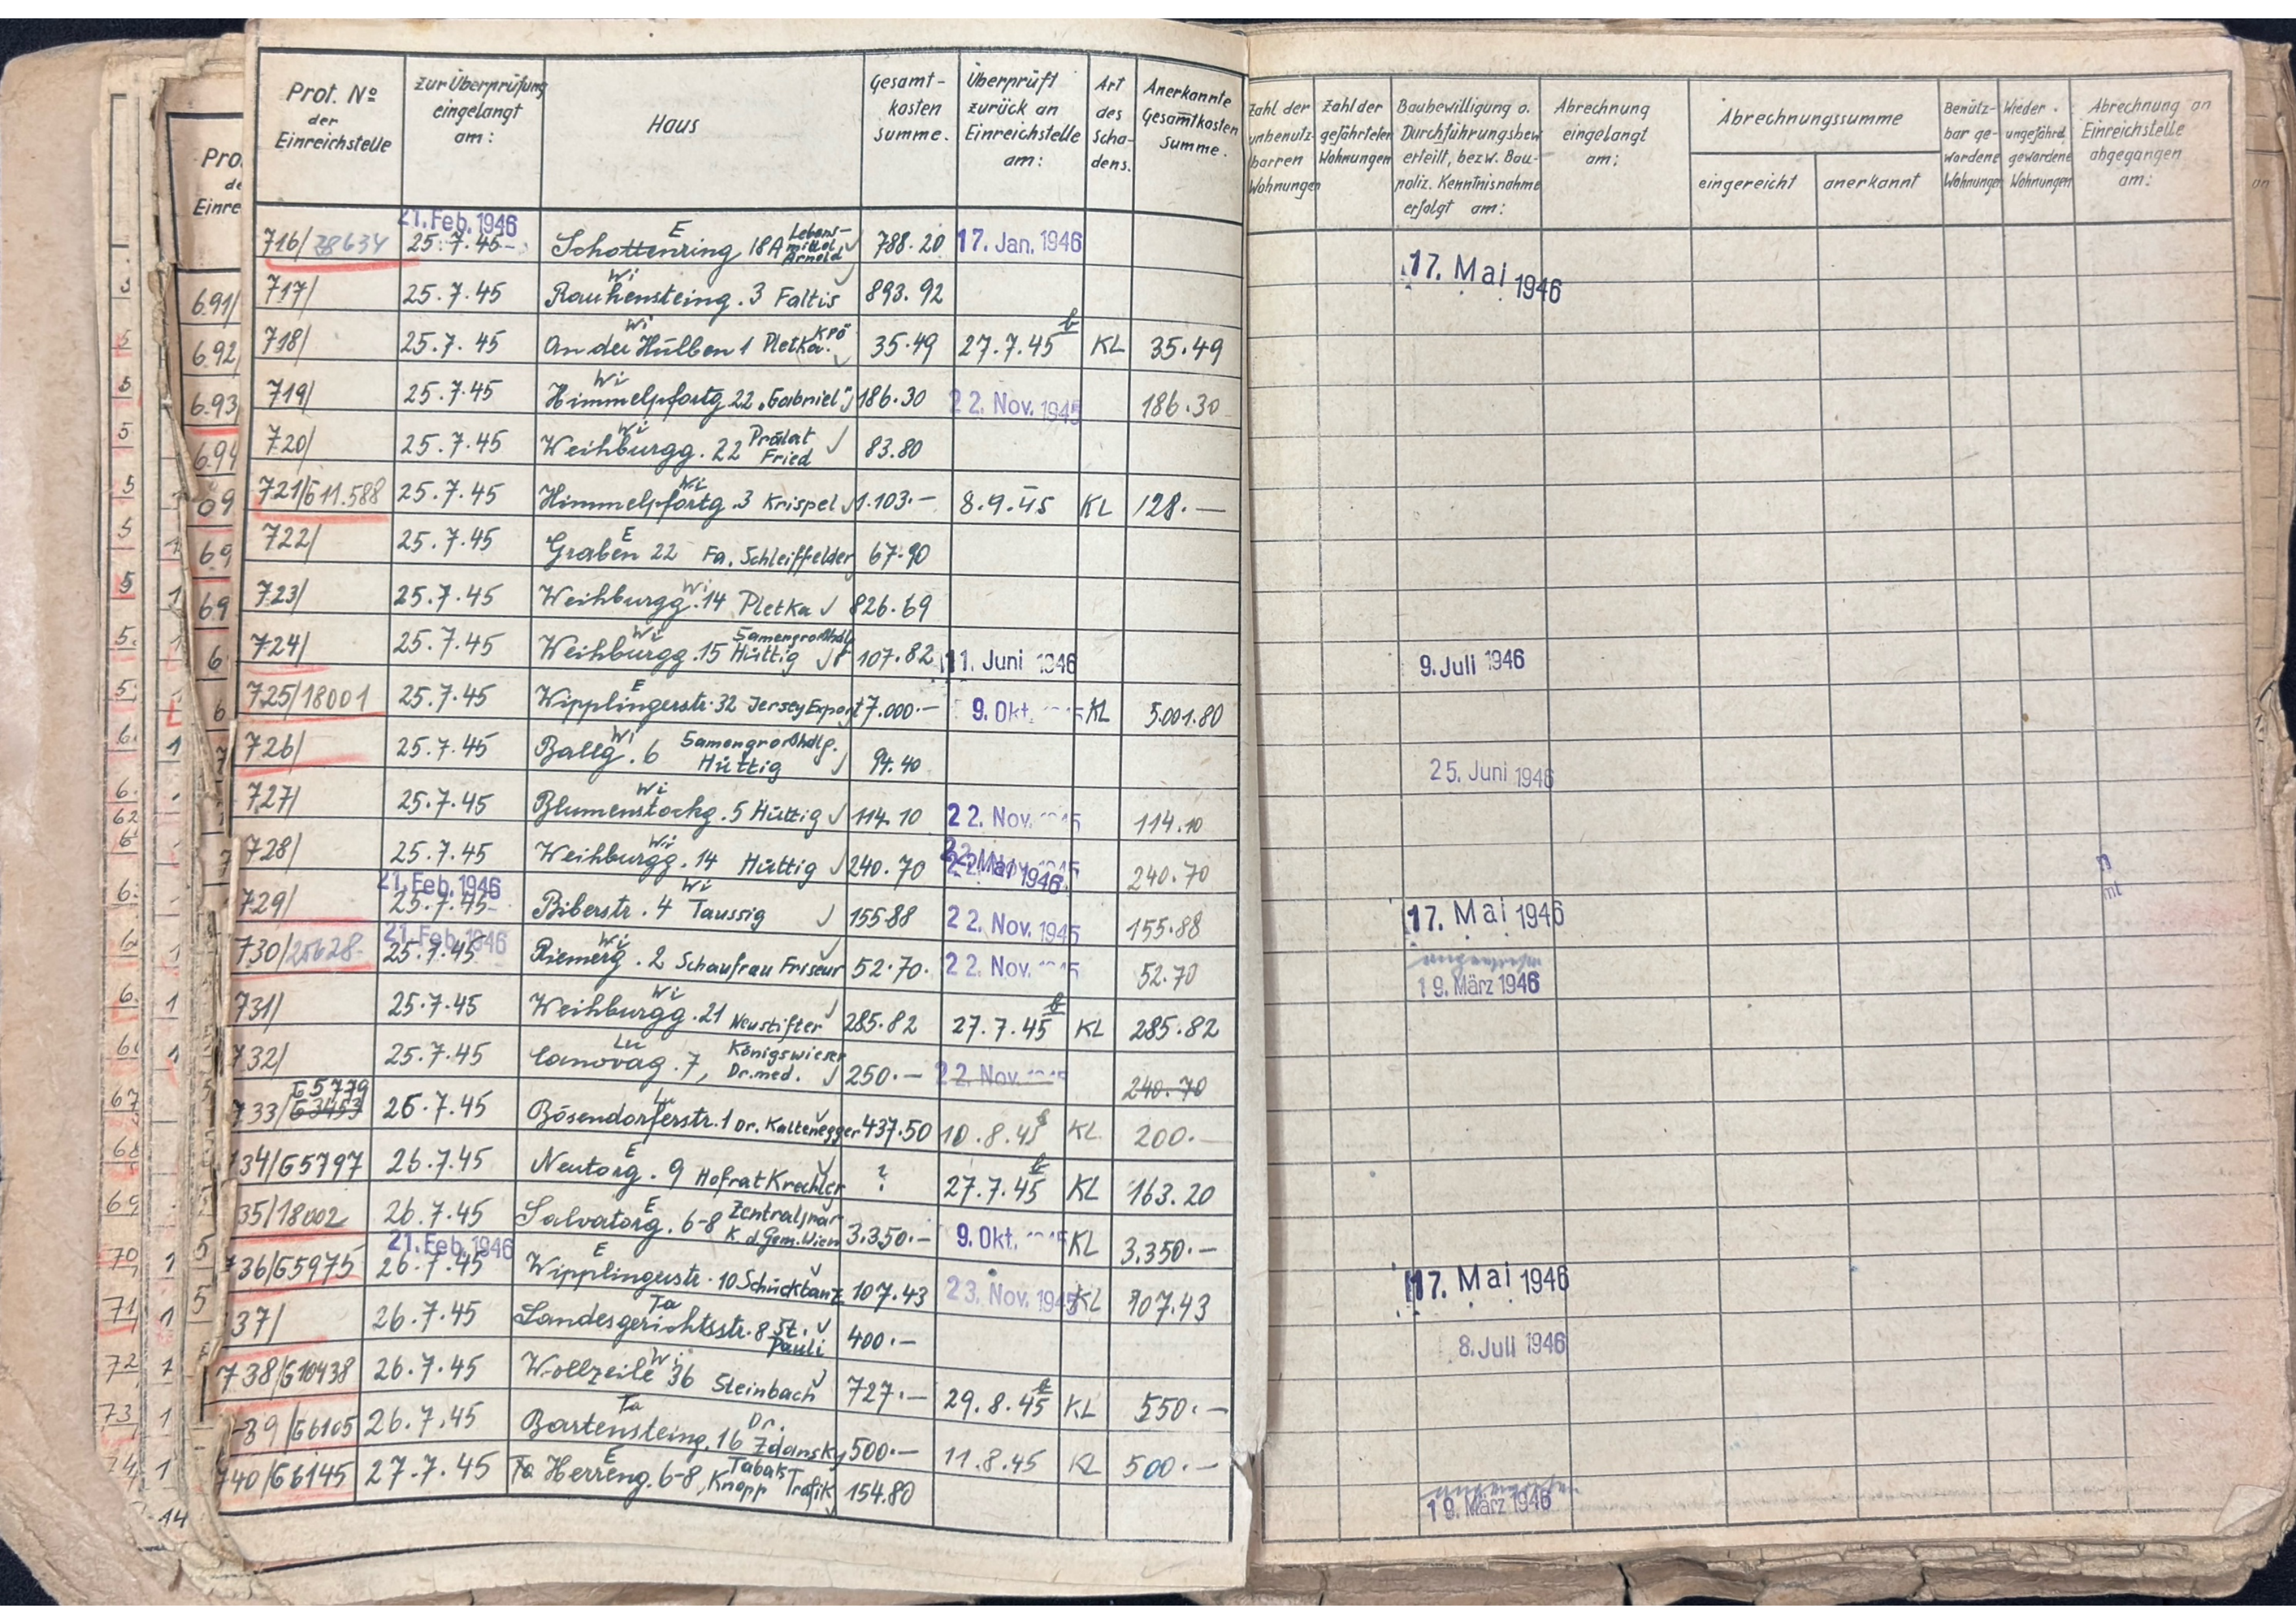 Prot. No der Einreichstelle | zur Überprüfung eingelangt am: | Haus | Gesamt-kosten summe. | Überprüft zurück an Einreichstelle am: | Art des Scha-dens. | Anerkannte Gesamtkosten Summe. | Zahl der unbenutz-barren Wohnungen | Zahl der gefährteten Wohnungen | Baubewilligung o. Durchführungsbew. erteilt, bezw. Bau-poliz. Kenntnisnahme erfolgt am: | Abrechnung eingelangt am: | Abrechnungssumme eingereicht | anerkannt | Benütz-bar ge-wordene Wohnungen | Wieder ungefährd. gewordene Wohnungen | Abrechnung an Einreichstelle abgegangen am:
716/38634 | 21. Feb. 1946 25.7.45 | E Schottenring 18A Lebens-mittel Arnold | 788.20 | 17. Jan. 1946 | 17. Mai 1946
717/ | 25.7.45 | Wi Rauhensteing. 3 Faltis | 893.92
718/ | 25.7.45 | Wi An der Hülben 1 Pletka KPÖ | 35.49 | 27.7.45 | KL | 35.49
719/ | 25.7.45 | Wi Himmelpfortg 22 „Gabriel" | 186.30 | 22. Nov. 1945 | 186.30
720/ | 25.7.45 | Wi Weihburgg. 22 Prälat Fried | 83.80
721/G11.588 | 25.7.45 | Wi Himmelpfortg. 3 Krispel | 1.103.— | 8.9.45 | KL | 128.—
722/ | 25.7.45 | E Graben 22 Fa. Schleiffelder | 67.90
723/ | 25.7.45 | Wi Weihburgg. 14 Pletka | 826.69
724/ | 25.7.45 | Wi Weihburgg. 15 Samengroßhdlg Hüttig | 107.82 | 11. Juni 1946 | 9. Juli 1946
725/18001 | 25.7.45 | E Wipplingerstr. 32 Jersey Export | 7.000.— | 9. Okt. | KL | 5.001.80
726/ | 25.7.45 | Wi Ballg. 6 Samengroßhdlg. Hüttig | 94.40 | 25. Juni 1946
727/ | 25.7.45 | Wi Blumenstockg. 5 Hüttig | 114.10 | 22. Nov. | 114.10
728/ | 25.7.45 | Wi Weihburgg. 14 Hüttig | 240.70 | 22. Mai 1946 | 240.70
729/ | 21. Feb. 1946 25.7.45 | Wi Biberstr. 4 Taussig | 155.88 | 22. Nov. 1945 | 155.88 | 17. Mai 1946
730/25628 | 21. Feb. 1946 25.7.45 | Wi Riemerg. 2 Schaufrau Friseur | 52.70. | 22. Nov. | 52.70 | angewiesen 19. März 1946
731/ | 25.7.45 | Wi Weihburgg. 21 Neustifter | 285.82 | 27.7.45 | KL | 285.82
732/ | 25.7.45 | Lu Canovag. 7, Königswieser Dr. med. | 250.— | 22. Nov. | 240.70
733/G5779 G3453 | 26.7.45 | Bösendorferstr. 1 Dr. Kaltenegger | 437.50 | 10.8.45 | KL | 200.—
34/G5797 | 26.7.45 | E Neutorg. 9 Hofrat Krechler | ? | 27.7.45 | KL | 163.20
35/18002 | 26.7.45 | E Salvatorg. 6-8 K. d. Gem. Wien | 3.350.— | 9. Okt. | KL | 3.350.—
736/G5975 | 21. Feb. 1946 26.7.45 | E Wipplingerstr. 10 Schücktanz | 107.43 | 23. Nov. 1945 | KL | 107.43 | 17. Mai 1946
37/ | 26.7.45 | Ta Landesgerichtsstr. 8 St. Pauli | 400.— | 8. Juli 1946
738/G10438 | 26.7.45 | Wi Wollzeile 36 Steinbach | 727.— | 29.8.45 | KL | 550.—
39/G6105 | 26.7.45 | Ta Bartensteing. 16 Dr. Zdansky | 500.— | 11.8.45 | KL | 500.—
740/G6145 | 27.7.45 | E Herreng. 6-8, Knapp Tabak Trafik | 154.80 | angewiesen 19. März 1946